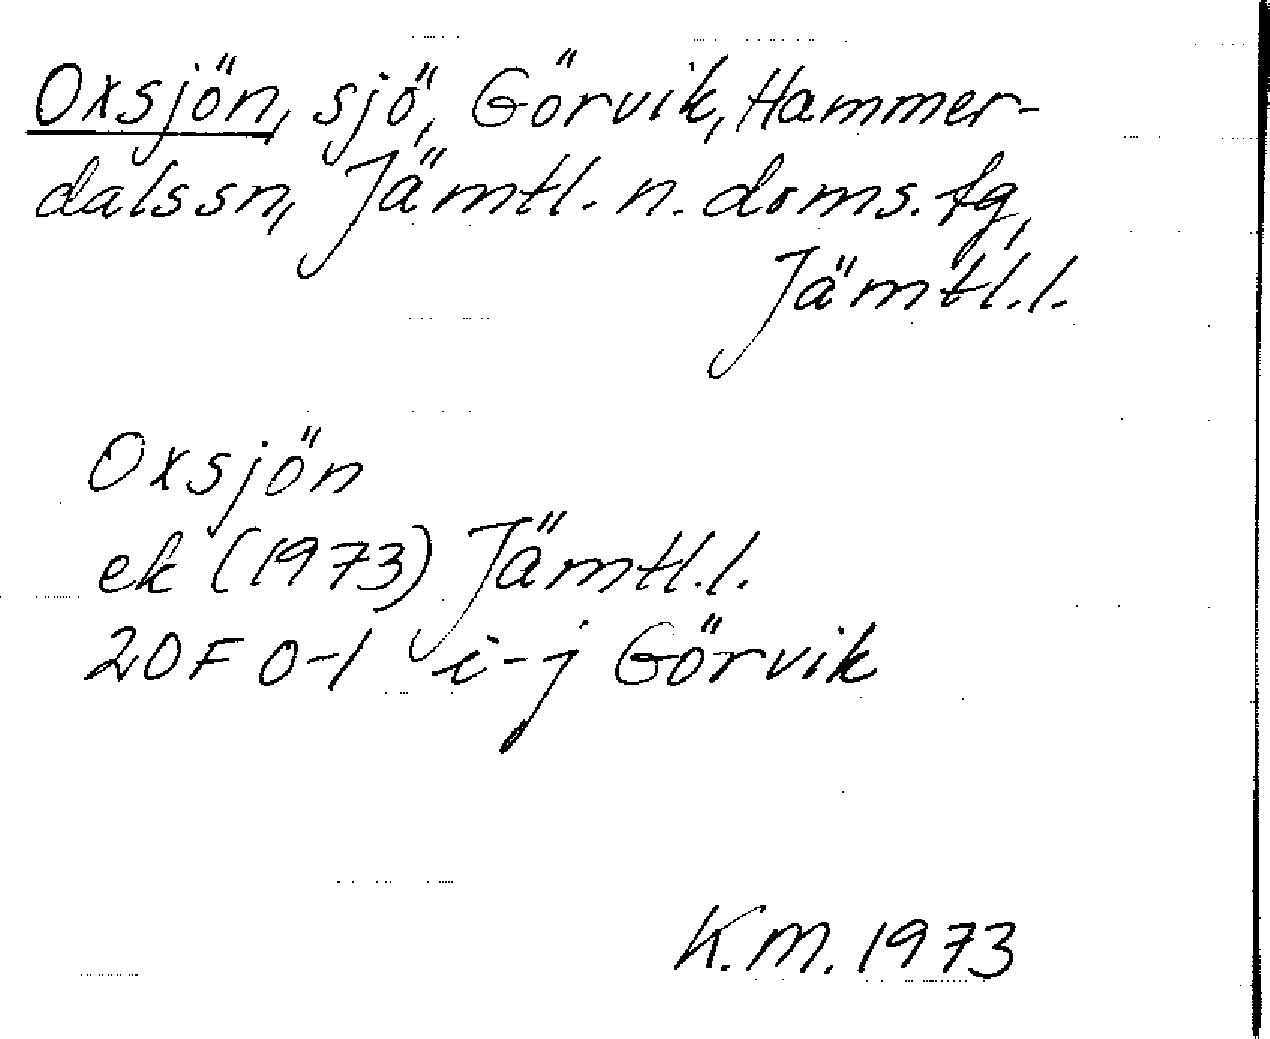 Oxsjön, sjö, Görvik, Hammer-
dals sn, Jämtl. n. doms. tg,
Jämtl. l.
Oxsjön
ek (1973) Jämtl. l.
20F 0-1 i-j Görvik
K.M. 1973